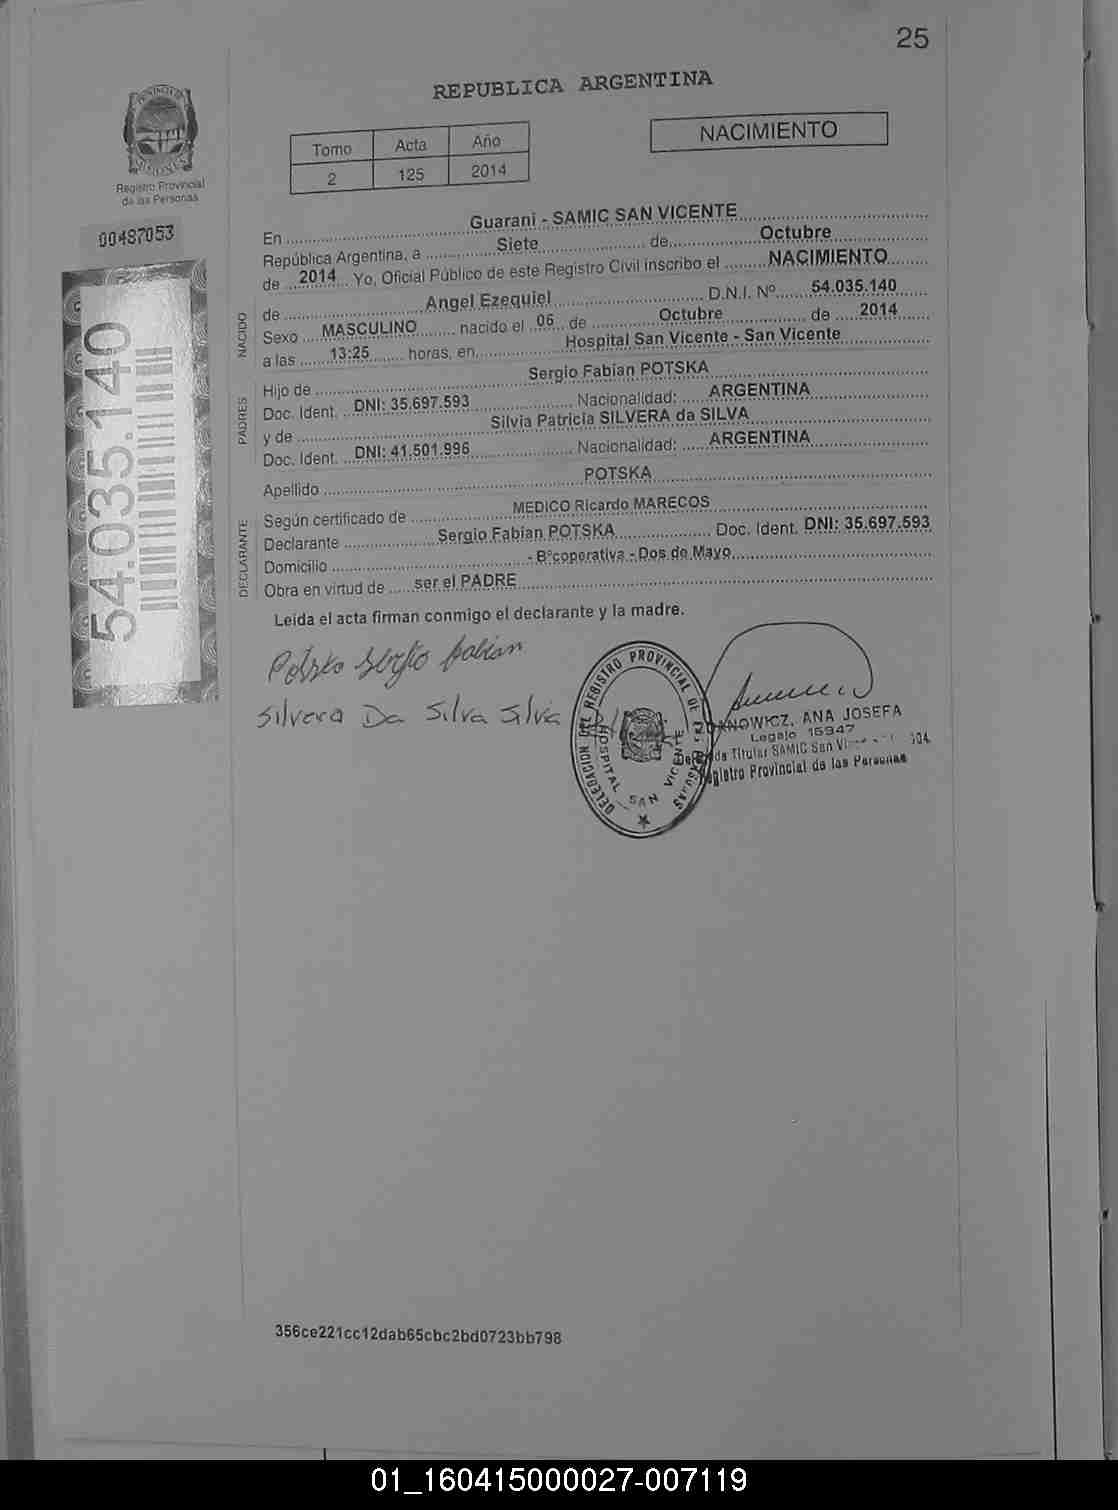 25
REPUBLICA ARGENTINA
Tomo Acta Año
2 125 2014
NACIMIENTO
PROVINCIA DE
MISIONES
Registro Provincial
de las Personas
00487053
54.035.140
En Guarani - SAMIC SAN VICENTE
República Argentina, a Siete de Octubre
de 2014 Yo, Oficial Público de este Registro Civil inscribo el NACIMIENTO
NACIDO
de Angel Ezequiel D.N.I. Nº 54.035.140
Sexo MASCULINO nacido el 06 de Octubre de 2014
a las 13:25 horas, en Hospital San Vicente - San Vicente
PADRES
Hijo de Sergio Fabian POTSKA
Doc. Ident. DNI: 35.697.593 Nacionalidad: ARGENTINA
y de Silvia Patricia SILVERA da SILVA
Doc. Ident. DNI: 41.501.996 Nacionalidad: ARGENTINA
Apellido POTSKA
DECLARANTE
Según certificado de MEDICO Ricardo MARECOS
Declarante Sergio Fabian POTSKA Doc. Ident. DNI: 35.697.593
Domicilio - B°coperativa - Dos de Mayo
Obra en virtud de ser el PADRE
Leida el acta firman conmigo el declarante y la madre.
Potska Sergio fabian
Silvera Da Silva Silvia
DELEGACION DEL REGISTRO PROVINCIAL DE LAS PERSONAS
HOSPITAL SAN VICENTE
ANA JOSEFA
Legajo 15947
Titular SAMIC San
Registro Provincial de las Personas
356ce221cc12dab65cbc2bd0723bb798
01_160415000027-007119